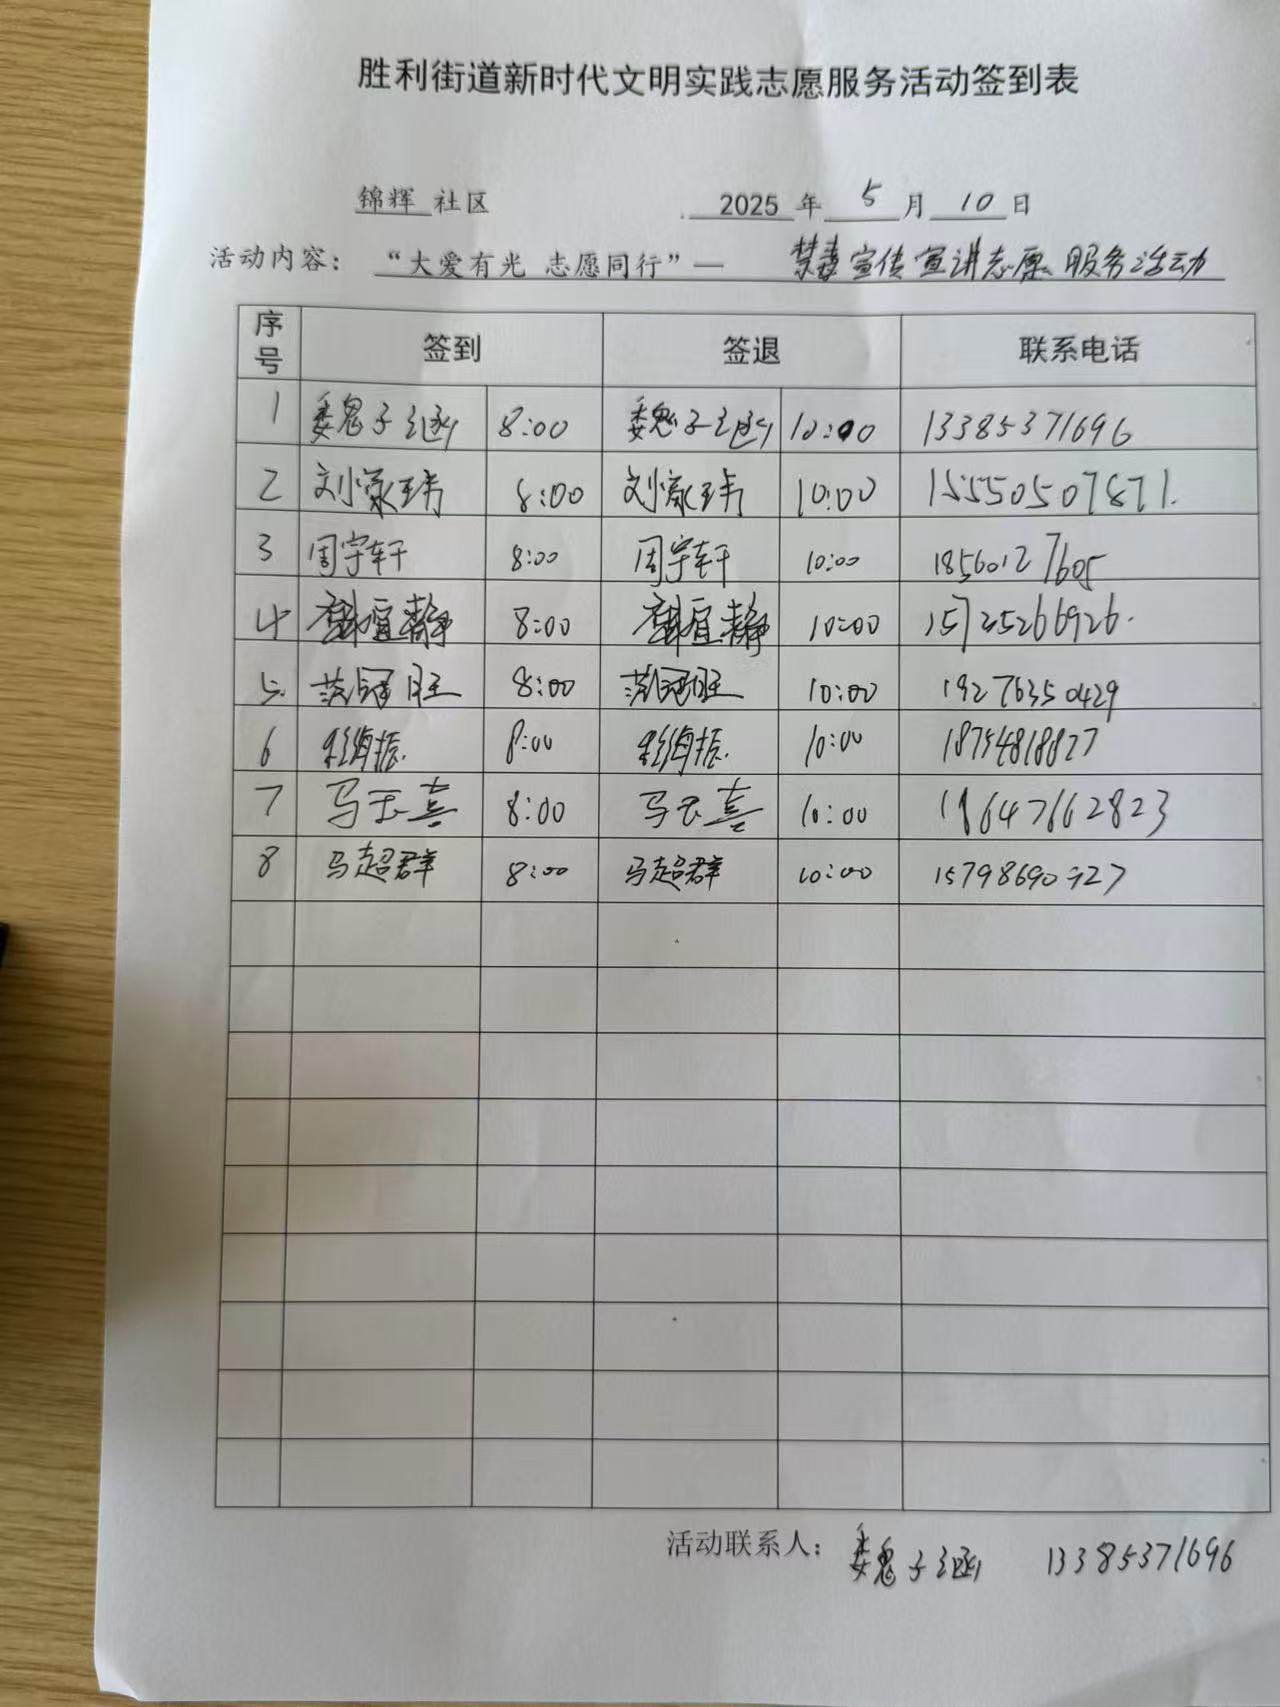 胜利街道新时代文明实践志愿服务活动签到表
锦辉 社区 2025 年 5 月 10 日
活动内容： “大爱有光 志愿同行”— 禁毒宣传宣讲志愿服务活动
序号 签到 签退 联系电话
1 魏子涵 8:00 魏子涵 10:00 13385371696
2 刘家玮 8:00 刘家玮 10:00 15550507871
3 周宇轩 8:00 周宇轩 10:00 18560127605
4 8:00 10:00 15725266926
5 范冠旺 8:00 范冠旺 10:00 19276350429
6 8:00 10:00 18754818827
7 马玉喜 8:00 马玉喜 10:00 18647662823
8 马超群 8:00 马超群 10:00 15798690927
活动联系人： 魏子涵 13385371696